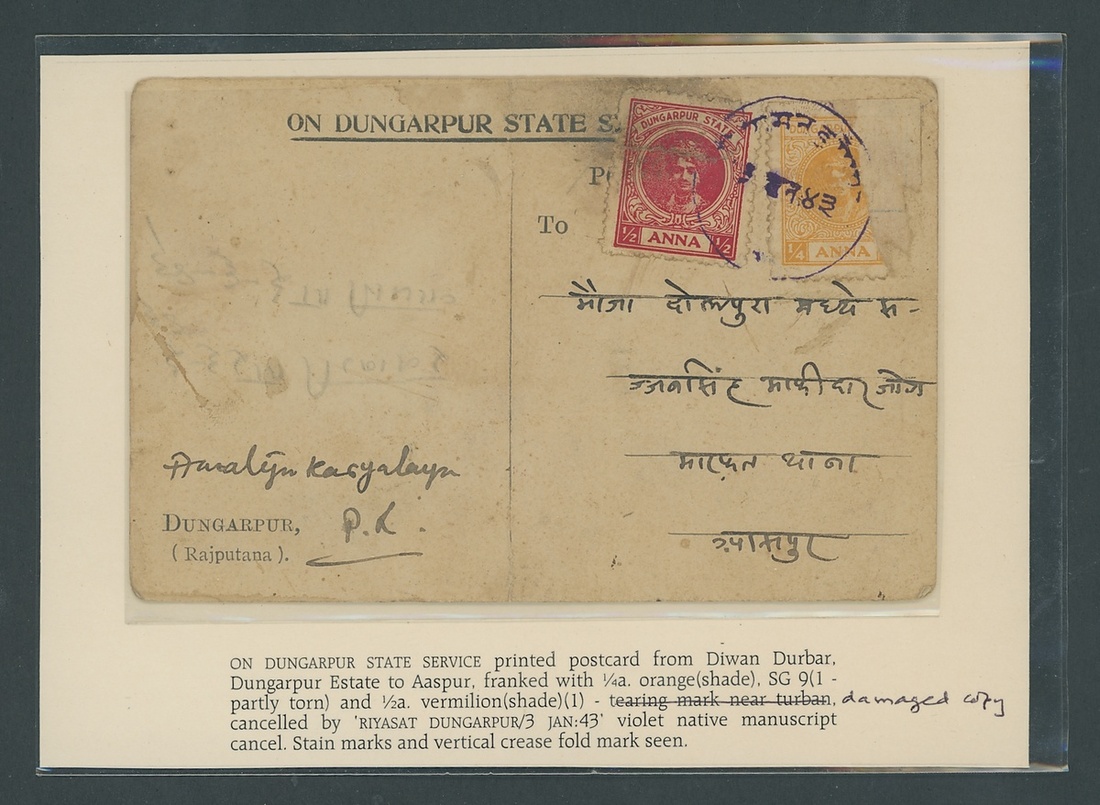 ON DUNGARPUR STATE
DUNGARPUR STATE
½ ANNA ½
¼ ANNA
To
मौजा दोलपुरा मध्ये स-
ज्जनसिंह माफीदार जोग
मारफत थाना
आसपुर
Karyalaya
DUNGARPUR,
(Rajputana).
ON DUNGARPUR STATE SERVICE printed postcard from Diwan Durbar,
Dungarpur Estate to Aaspur, franked with ¼a. orange(shade), SG 9(1 -
partly torn) and ½a. vermilion(shade)(1) - tearing mark near turban, damaged copy
cancelled by 'RIYASAT DUNGARPUR/3 JAN:43' violet native manuscript
cancel. Stain marks and vertical crease fold mark seen.